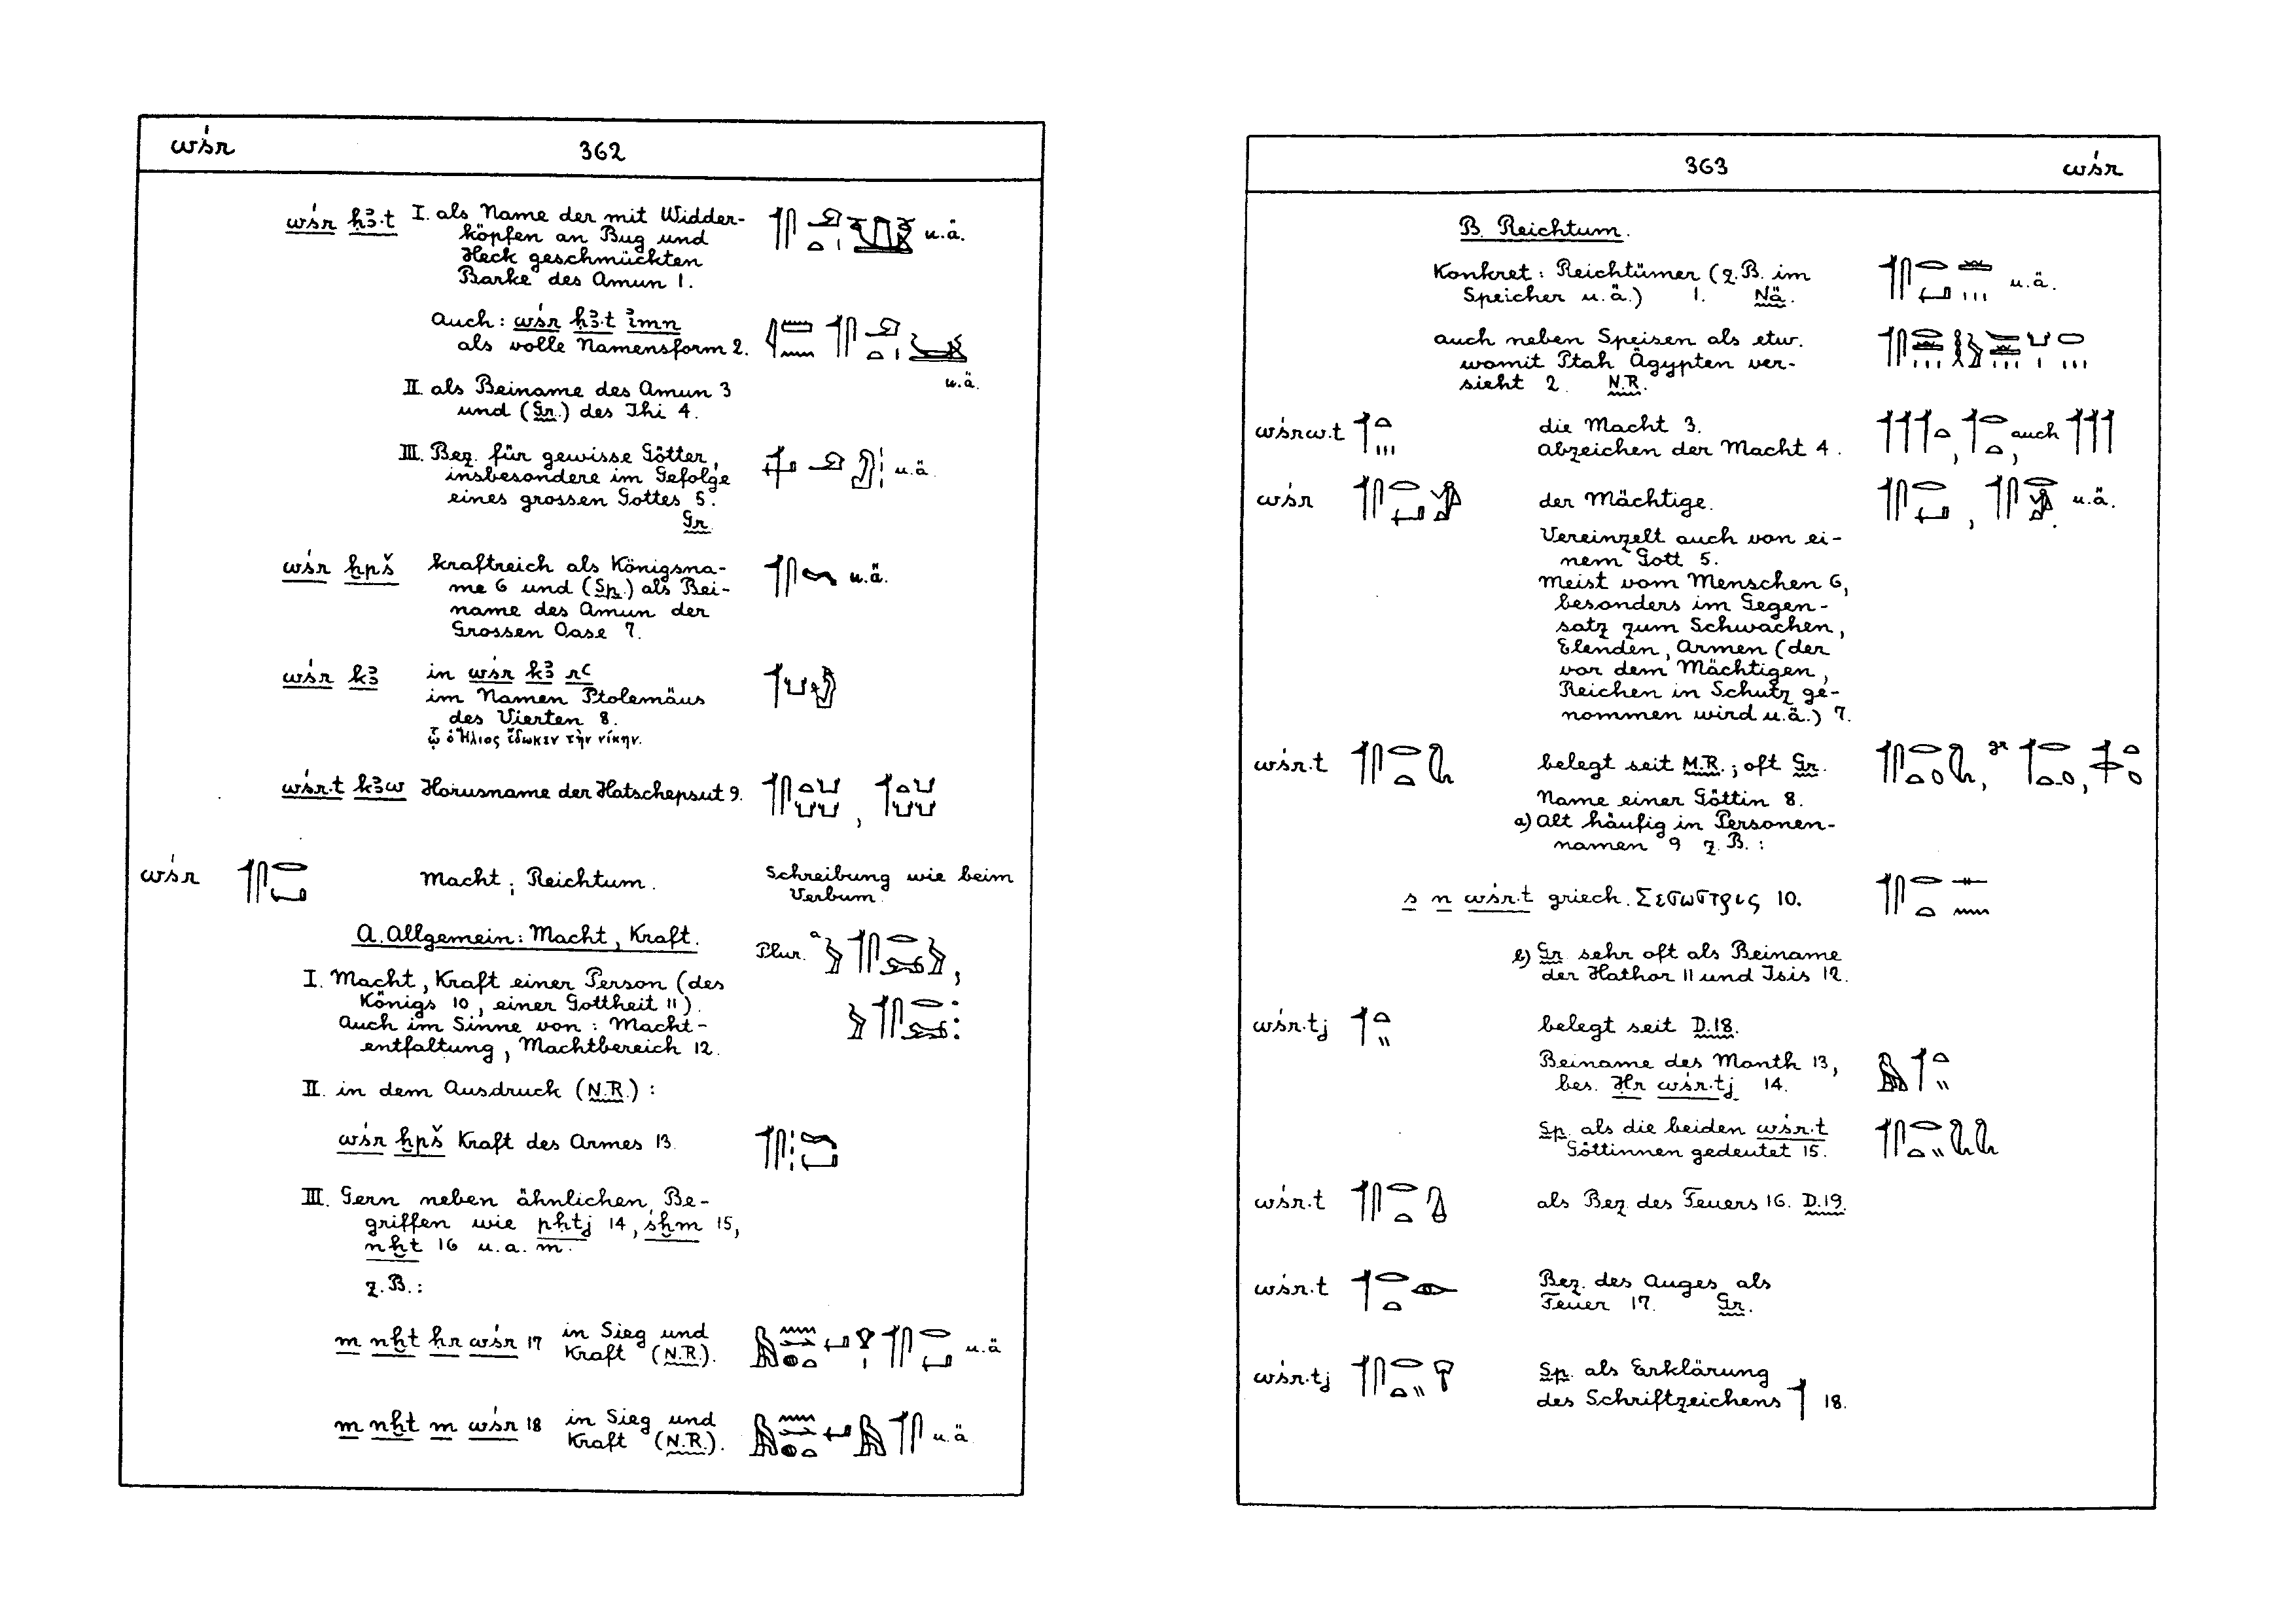 wśr 362
wśr ḥꜣ·t I. als Name der mit Widder-
köpfen an Bug und
Heck geschmückten
Barke des Amun 1.
u.ä.
Auch: wśr ḥꜣ·t ỉmn
als volle Namensform 2.
u.ä.
II. als Beiname des Amun 3
und (Gr.) des Ihi 4.
III. Bez. für gewisse Götter,
insbesondere im Gefolge
eines grossen Gottes 5.
Gr.
u.ä.
wśr ḫpš kraftreich als Königsna-
me 6 und (Sp.) als Bei-
name des Amun der
Grossen Oase 7.
u.ä.
wśr kꜣ in wśr kꜣ rꜥ
im Namen Ptolemäus
des Vierten 8.
ᾧ ὁ Ἥλιος ἔδωκεν τὴν νίκην.
wśr·t kꜣw Horusname der Hatschepsut 9.
wśr Macht; Reichtum. Schreibung wie beim
Verbum.
A. Allgemein: Macht, Kraft.
Plur. a
I. Macht, Kraft einer Person (des
Königs 10, einer Gottheit 11).
Auch im Sinne von: Macht-
entfaltung, Machtbereich 12.
II. in dem Ausdruck (N.R.):
wśr ḫpš Kraft des Armes 13.
III. Gern neben ähnlichen Be-
griffen wie pḥtj 14, śḫm 15,
nḫt 16 u.a.m.
z.B.:
m nḫt ḥr wśr 17 in Sieg und
Kraft (N.R.).
u.ä
m nḫt m wśr 18 in Sieg und
Kraft (N.R.).
u.ä
363 wśr
B. Reichtum.
Konkret: Reichtümer (z.B. im
Speicher u.ä.) 1. Nä.
u.ä.
auch neben Speisen als etw.
womit Ptah Ägypten ver-
sieht 2. N.R.
wśrw·t die Macht 3.
Abzeichen der Macht 4.
auch
wśr der Mächtige.
u.ä.
Vereinzelt auch von ei-
nem Gott 5.
Meist vom Menschen 6,
besonders im Gegen-
satz zum Schwachen,
Elenden, Armen (der
vor dem Mächtigen,
Reichen in Schutz ge-
nommen wird u.ä.) 7.
wśr·t belegt seit M.R.; oft Gr.
gr
Name einer Göttin 8.
a) Alt häufig in Personen-
namen 9 z.B.:
s n wśr·t griech. Σεσωστρις 10.
b) Gr. sehr oft als Beiname
der Hathor 11 und Isis 12.
wśr·tj belegt seit D.18.
Beiname des Month 13,
bes. Ḥr wśr·tj 14.
Sp. als die beiden wśr·t
Göttinnen gedeutet 15.
wśr·t als Bez. des Feuers 16. D.19.
wśr·t Bez. des Auges als
Feuer 17. Gr.
wśr·tj Sp. als Erklärung
des Schriftzeichens 18.